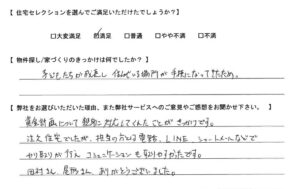 【 住宅セレクションを選んでご満足いただけたでしょうか? 】
□大変満足 ☑満足 □普通 □やや不満 □不満
【 物件探し/家づくりのきっかけは何でしたか? 】
子どもたちが成長し 住んでいる場所が手狭になってきたため。
【 弊社をお選びいただいた理由、また弊社サービスへのご意見やご感想をお聞かせ下さい。 】
資金計画について親身に対応してくれたことがきっかけです。
注文住宅でしたが、担当の方とは電話、LINE、ショートメールなどで
やり取りが行え コミュニケーションも取りやすかったです。
田村さん、尾形さん、ありがとうございました。